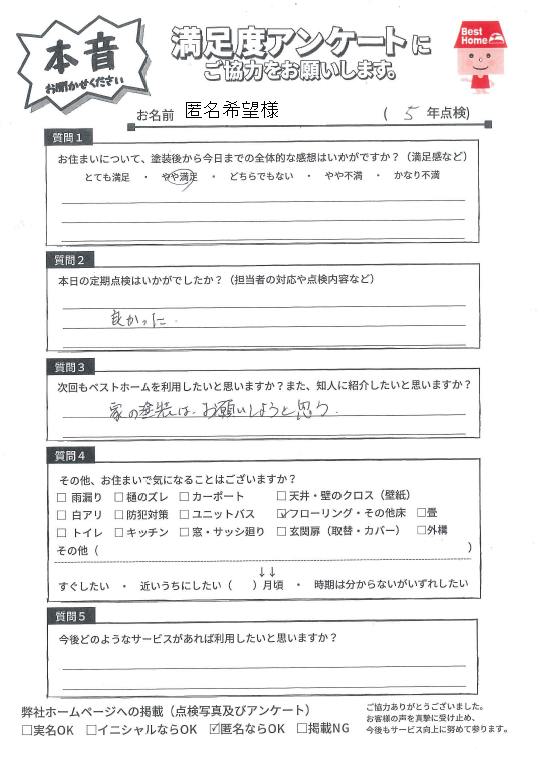 本音
お聞かせください
満足度アンケートに
ご協力をお願いします。
Best
Home
お名前 匿名希望様 ( 5 年点検)
質問1
お住まいについて、塗装後から今日までの全体的な感想はいかがですか?(満足感など)
とても満足 ・ やや満足 ・ どちらでもない ・ やや不満 ・ かなり不満
質問2
本日の定期点検はいかがでしたか?(担当者の対応や点検内容など)
良かった.
質問3
次回もベストホームを利用したいと思いますか?また、知人に紹介したいと思いますか?
家の塗装は、お願いしようと思う.
質問4
その他、お住まいで気になることはございますか?
□ 雨漏り □ 樋のズレ □ カーポート □ 天井・壁のクロス(壁紙)
□ 白アリ □ 防犯対策 □ ユニットバス ☑フローリング・その他床 □畳
□ トイレ □ キッチン □ 窓・サッシ廻り □ 玄関扉(取替・カバー) □外構
その他( )
↓↓
すぐしたい ・ 近いうちにしたい( )月頃 ・ 時期は分からないがいずれしたい
質問5
今後どのようなサービスがあれば利用したいと思いますか?
弊社ホームページへの掲載(点検写真及びアンケート)
□実名OK □イニシャルならOK ☑匿名ならOK □掲載NG
ご協力ありがとうございました。
お客様の声を真摯に受け止め、
今後もサービス向上に努めて参ります。